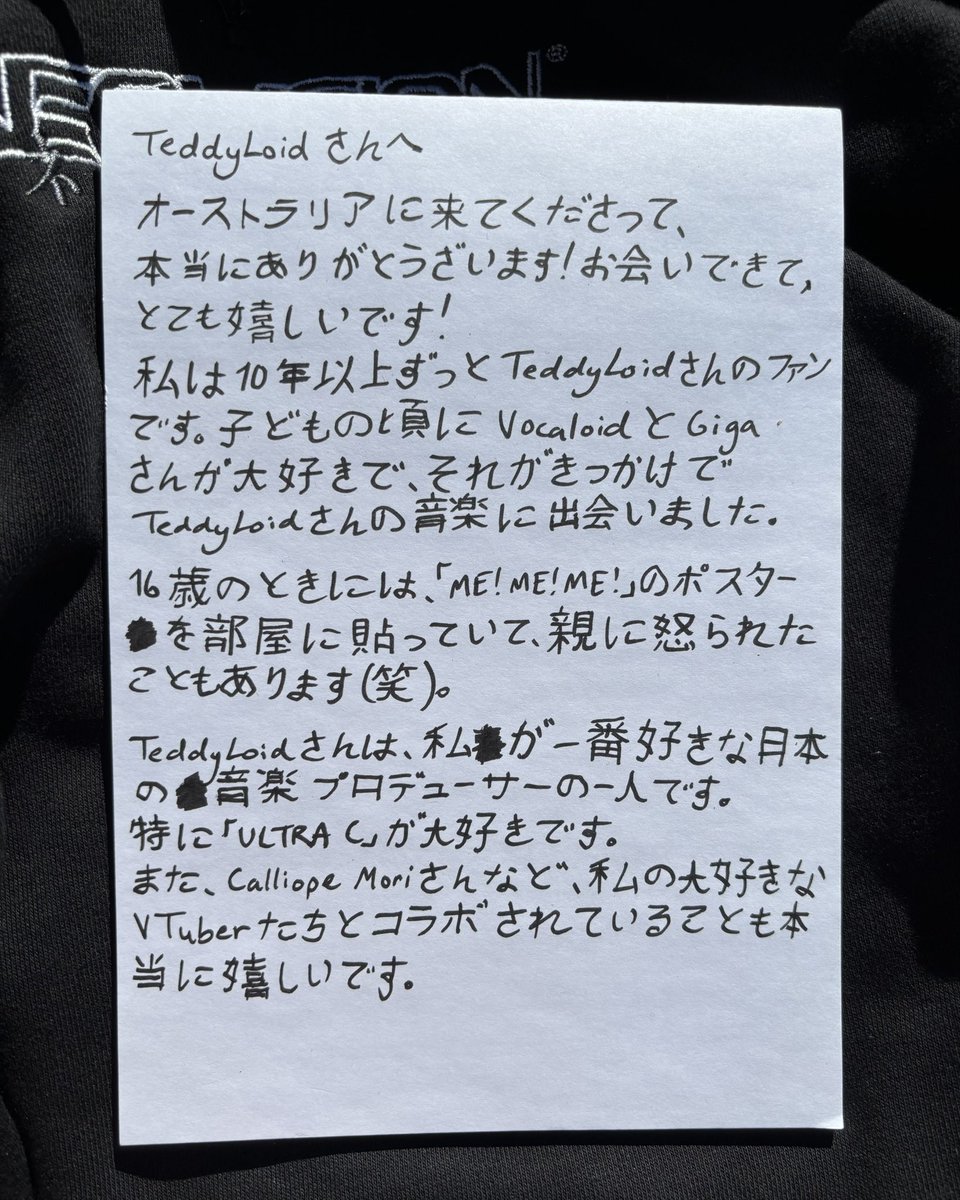 TeddyLoidさんへ
オーストラリアに来てくださって、
本当にありがとうございます!お会いできて,
とても嬉しいです!
私は10年以上ずっとTeddyLoidさんのファン
です。子どもの頃にVocaloidとGiga
さんが大好きで、それがきっかけで
TeddyLoidさんの音楽に出会いました。
16歳のときには、「ME!ME!ME!」のポスター
を部屋に貼っていて、親に怒られた
こともあります(笑)。
TeddyLoidさんは、私が一番好きな日本
の音楽プロデューサーの一人です。
特に「ULTRA C」が大好きです。
また、Calliope Moriさんなど、私の大好きな
VTuberたちとコラボされていることも本
当に嬉しいです。